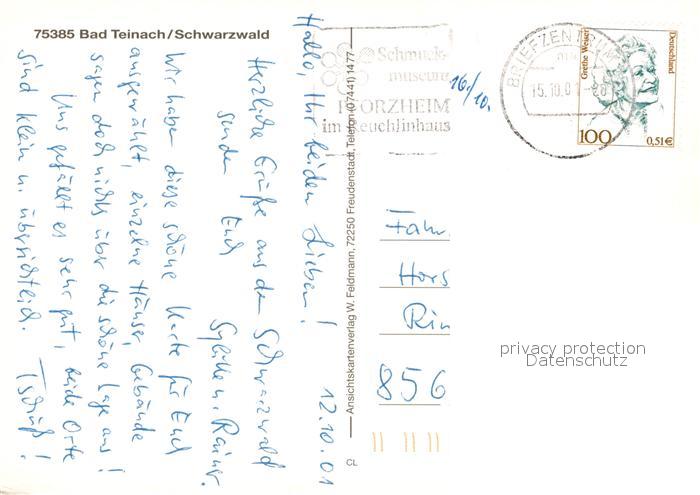 75385 Bad Teinach/Schwarzwald
12.10.01
Hallo, Ihr beiden Lieben!
Herzliche Grüße aus dem Schwarzwald
senden Euch
Sybille u. Rainer.
Wir haben diese schöne Karte für Euch
ausgewählt, einzelne Häuser, Gebäude
sagen doch nichts über die schöne Lage aus!
Uns gefällt es sehr gut, beide Orte
sind klein u. übersichtlich. Tschüß!
Ansichtskartenverlag W. Feldmann, 72250 Freudenstadt, Telefon (07441) 1477
CL
Schmuck-
museum
PFORZHEIM
im Reuchlinhaus
16./10.
BRIEFZENTRUM
15.10.01
Grethe Weiser
Deutschland
100
0,51€
Fam.
Hors
Rin
856
privacy protection
Datenschutz